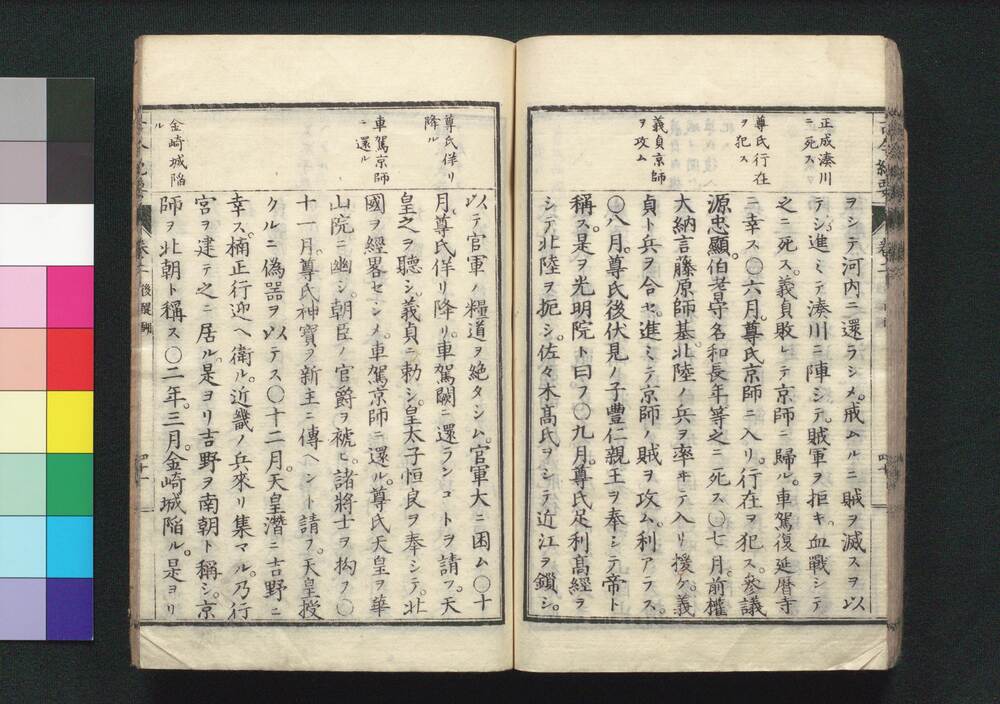 正成湊川
ニ死ス
尊氏行在
ヲ犯ス
義貞京師
ヲ攻ム
ヲシテ河内ニ還ラシメ。戒ムルニ賊ヲ滅スヲ以
テシ進ミテ湊川ニ陣シテ。賊軍ヲ拒キ。血戰シテ
之ニ死ス。義貞敗レテ京師ニ歸ル。車駕復延暦寺
ニ幸ス〇六月。尊氏京師ニ入リ。行在ヲ犯ス。參議
源忠顯。伯耆守名和長年等之ニ死ス〇七月。前權
大納言藤原師基。北陸ノ兵ヲ率ヰテ入リ援ク。義
貞ト兵ヲ合セ。進ミテ京師ノ賊ヲ攻ム。利アラス。
〇八月。尊氏後伏見ノ子豊仁親王ヲ奉シテ帝ト
稱ス。是ヲ光明院ト曰フ〇九月。尊氏足利髙經ヲ
シテ北陸ヲ扼シ。佐々木髙氏ヲシテ近江ヲ鎖シ。
尊氏佯リ
降ル
車駕京師
ニ還ル
金崎城陷
ル
以テ官軍ノ糧道ヲ絶タシム。官軍大ニ困ム〇十
月。尊氏佯リ降リ。車駕闕ニ還ランコトヲ請フ。天
皇之ヲ聽シ。義貞ニ勅シ。皇太子恒良ヲ奉シテ。北
國ヲ經畧セシメ。車駕京師ニ還ル。尊氏天皇ヲ華
山院ニ幽シ。朝臣ノ官爵ヲ褫ヒ。諸將士ヲ拘フ〇
十一月。尊氏神寶ヲ新主ニ傳ヘント請フ。天皇授
クルニ偽器ヲ以テス〇十二月。天皇潛ニ吉野ニ
幸ス。楠正行迎ヘ衛ル。近畿ノ兵來リ集マル。乃行
宮ヲ建テ之ニ居ル。是ヨリ吉野ヲ南朝ト稱シ。京
師ヲ北朝ト稱ス〇二年。三月。金崎城陷ル。是ヨリ
卷二 後醍醐
四十一